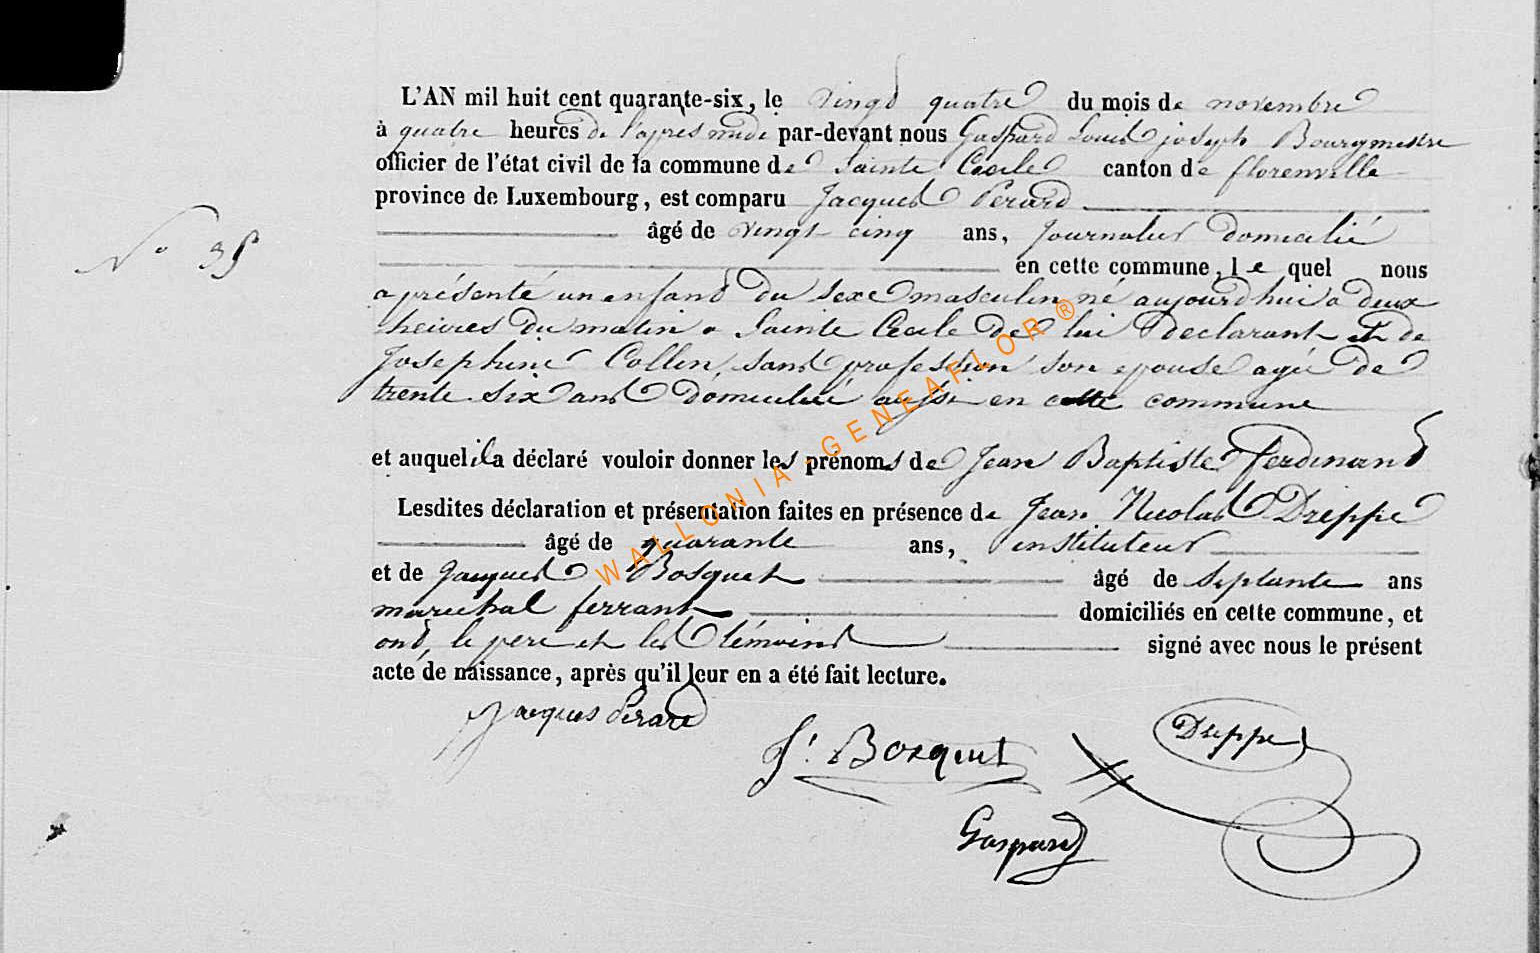 L'AN mil huit cent quarante-six, le vingt quatre du mois de novembre
à quatre heures de l'apres midi par-devant nous Gaspard Louis joseph Bourgmestre
officier de l'état civil de la commune de Sainte Cecile canton de florenville
province de Luxembourg, est comparu Jacques Perard
âgé de vingt cinq ans, Journalier domicilié
en cette commune, le quel nous
a présenté un enfant du sexe masculin né aujourd'hui a deux
heures du matin a Sainte Cecile de lui declarant et de
Josephine Collin, sans profession son epouse agée de
trente six ans domicilié aussi en cette commune
et auquel il a déclaré vouloir donner les prénoms de Jean Baptiste ferdinand
Lesdites déclaration et présentation faites en présence de Jean Nicolas Dreppe
âgé de quarante ans, instituteur
et de Jacques Bosquet âgé de septante ans
marechal ferrant domiciliés en cette commune, et
ont, le pere et les témoins signé avec nous le présent
acte de naissance, après qu'il leur en a été fait lecture.
N° 35
Jacques Perard
J. Bosquet
Dreppe
Gaspard
WALLONIA-GENEAFLOR®